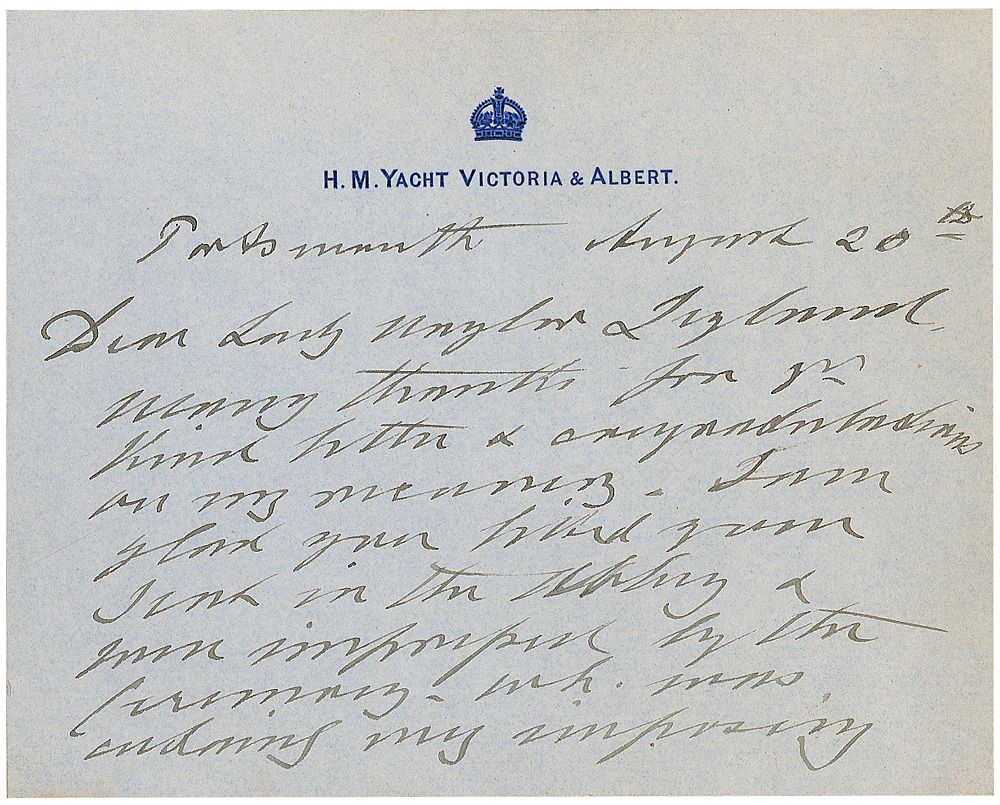 H. M. YACHT VICTORIA & ALBERT.
Portsmouth August 20th
Dear Lady Naylor Leyland,
Many thanks for yr
kind letter & congratulations
on my recovery. I am
glad you liked your
seat in the Abbey &
were impressed by the
Ceremony - wh. was
certainly imposing